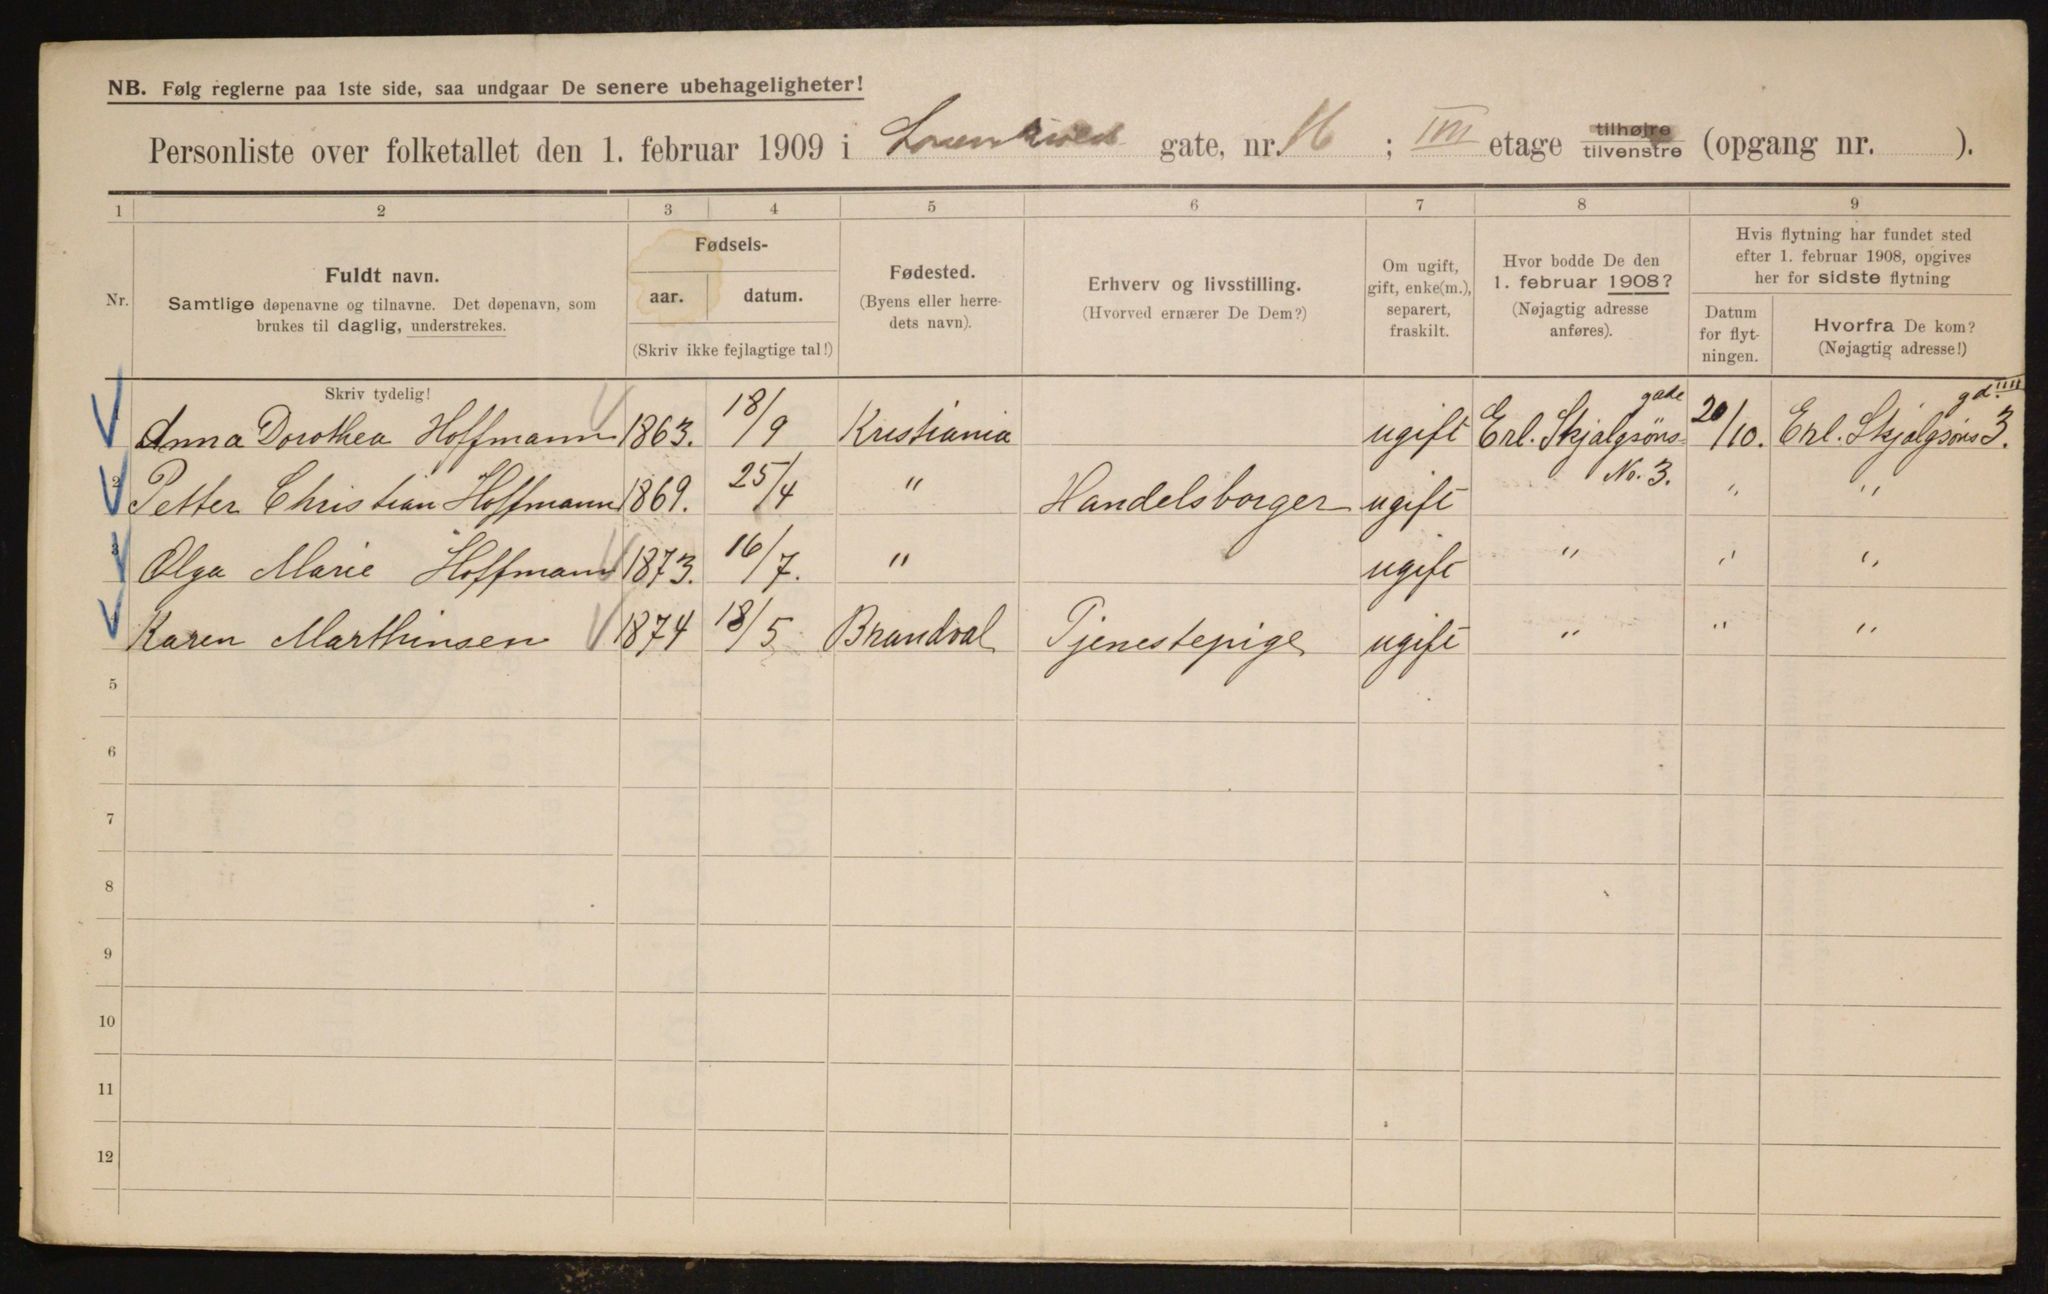 NB. Følg reglerne paa 1ste side, saa undgaar De senere ubehageligheter!
Personliste over folketallet den 1. februar 1909 i gate, nr. 16 ; etage tilhøjre tilvenstre (opgang nr. ).
1 2 3 4 5 6 7 8 9
Nr.
Fuldt navn.
Samtlige døpenavne og tilnavne. Det døpenavn, som
brukes til daglig, understrekes.
Skriv tydelig!
Fødsels-
aar. datum.
(Skriv ikke fejlagtige tal!)
Fødested.
(Byens eller herre-
dets navn).
Erhverv og livsstilling.
(Hvorved ernærer De Dem?)
Om ugift,
gift, enke(m.),
separert,
fraskilt.
Hvor bodde De den
1. februar 1908?
(Nøjagtig adresse
anføres).
Hvis flytning har fundet sted
efter 1. februar 1908, opgives
her for sidste flytning
Datum
for flyt-
ningen.
Hvorfra De kom?
(Nøjagtig adresse!)
1 Anna Dorothea Hoffmann 1863. 18/9 Kristiania ugift Erl. Skjalgsøns gade 20/10. Erl. Skjalgsøns gd. 3. IIII
2 Petter Christian Hoffmann 1869. 25/4 " Handelsborger ugift No. 3. " "
3 Olga Marie Hoffmann 1873. 16/7. " ugift " " "
4 Karen Marthinsen 1874 18/5 Brandval Tjenestepige ugift " " "
5
6
7
8
9
10
11
12